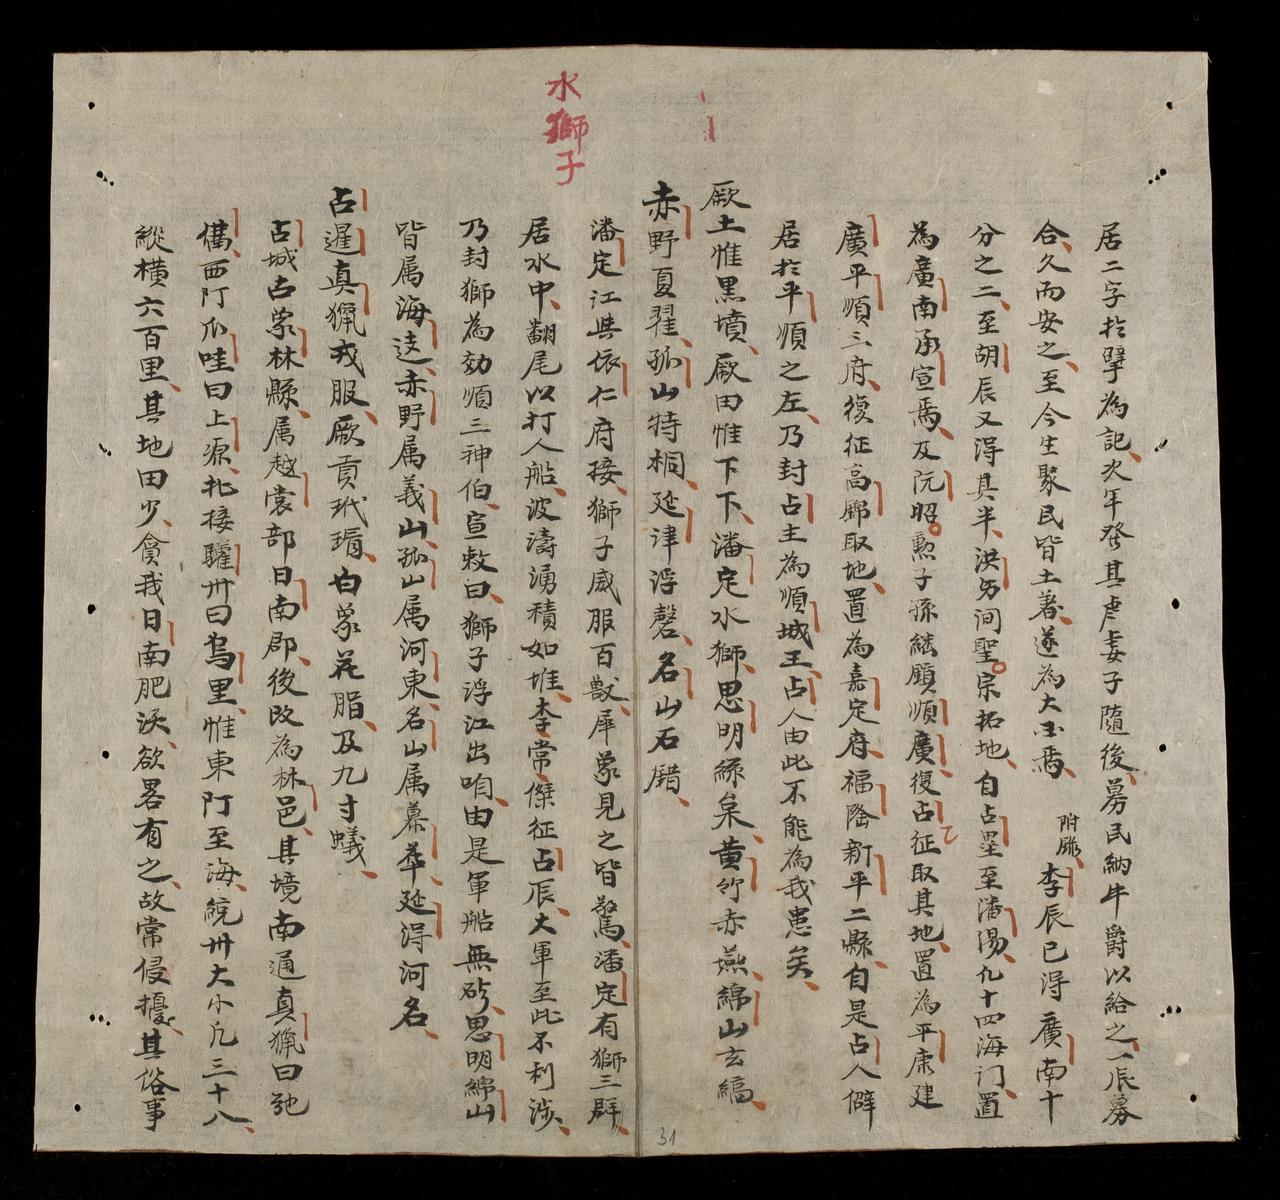 居二字扵擘為記次年癹其虐妻子隨後募民納牛爵以給之一辰募
合久而安之至今生聚民皆土著遂為大玊焉 附錄 李辰已淂廣南十
分之二至胡辰又淂其半洪𠃔间聖宗拓地自占壘至潘陽九十四海门置
為廣南承宣焉及阮昭勲子孫継顧順廣復占征取其地置為平康建
廣平順三府復征高綿取地置為嘉定府福隆新平二縣自是占人僻
居扵平順之左乃封占主為順城王占人由此不能為我患矣
厥土惟黒墳厥田惟下下潘定水獅思明絲枲黄竹赤燕綿山玄縞
赤野夏翟孤山特桐延津浮磬名山石磋
水獅子
潘定江與依仁府接獅子威服百獸犀象見之皆驚潘定有獅三群
居水中翻尾以打人船波濤湧積如堆李常傑征占辰大軍至此不利涉
乃封獅為効順三神伯宣敕曰獅子浮江出咱由是軍船無碍思明綿山
皆属海逵赤野属義山孤山属河東名山属慕華延淂河名
占暹真猟戎服厥貢玳瑁白象花脂及九寸蟻
占城古蒙林縣属越裳部日南郡後改為林邑其境南通真猟曰𧈧
儶西阿爪哇曰上源北接驩卅曰烏里惟東阿至海統卅大小凢三十八
縱横六百里其地田少貪我日南肥沃欲畧有之故常侵擾其俗事
31